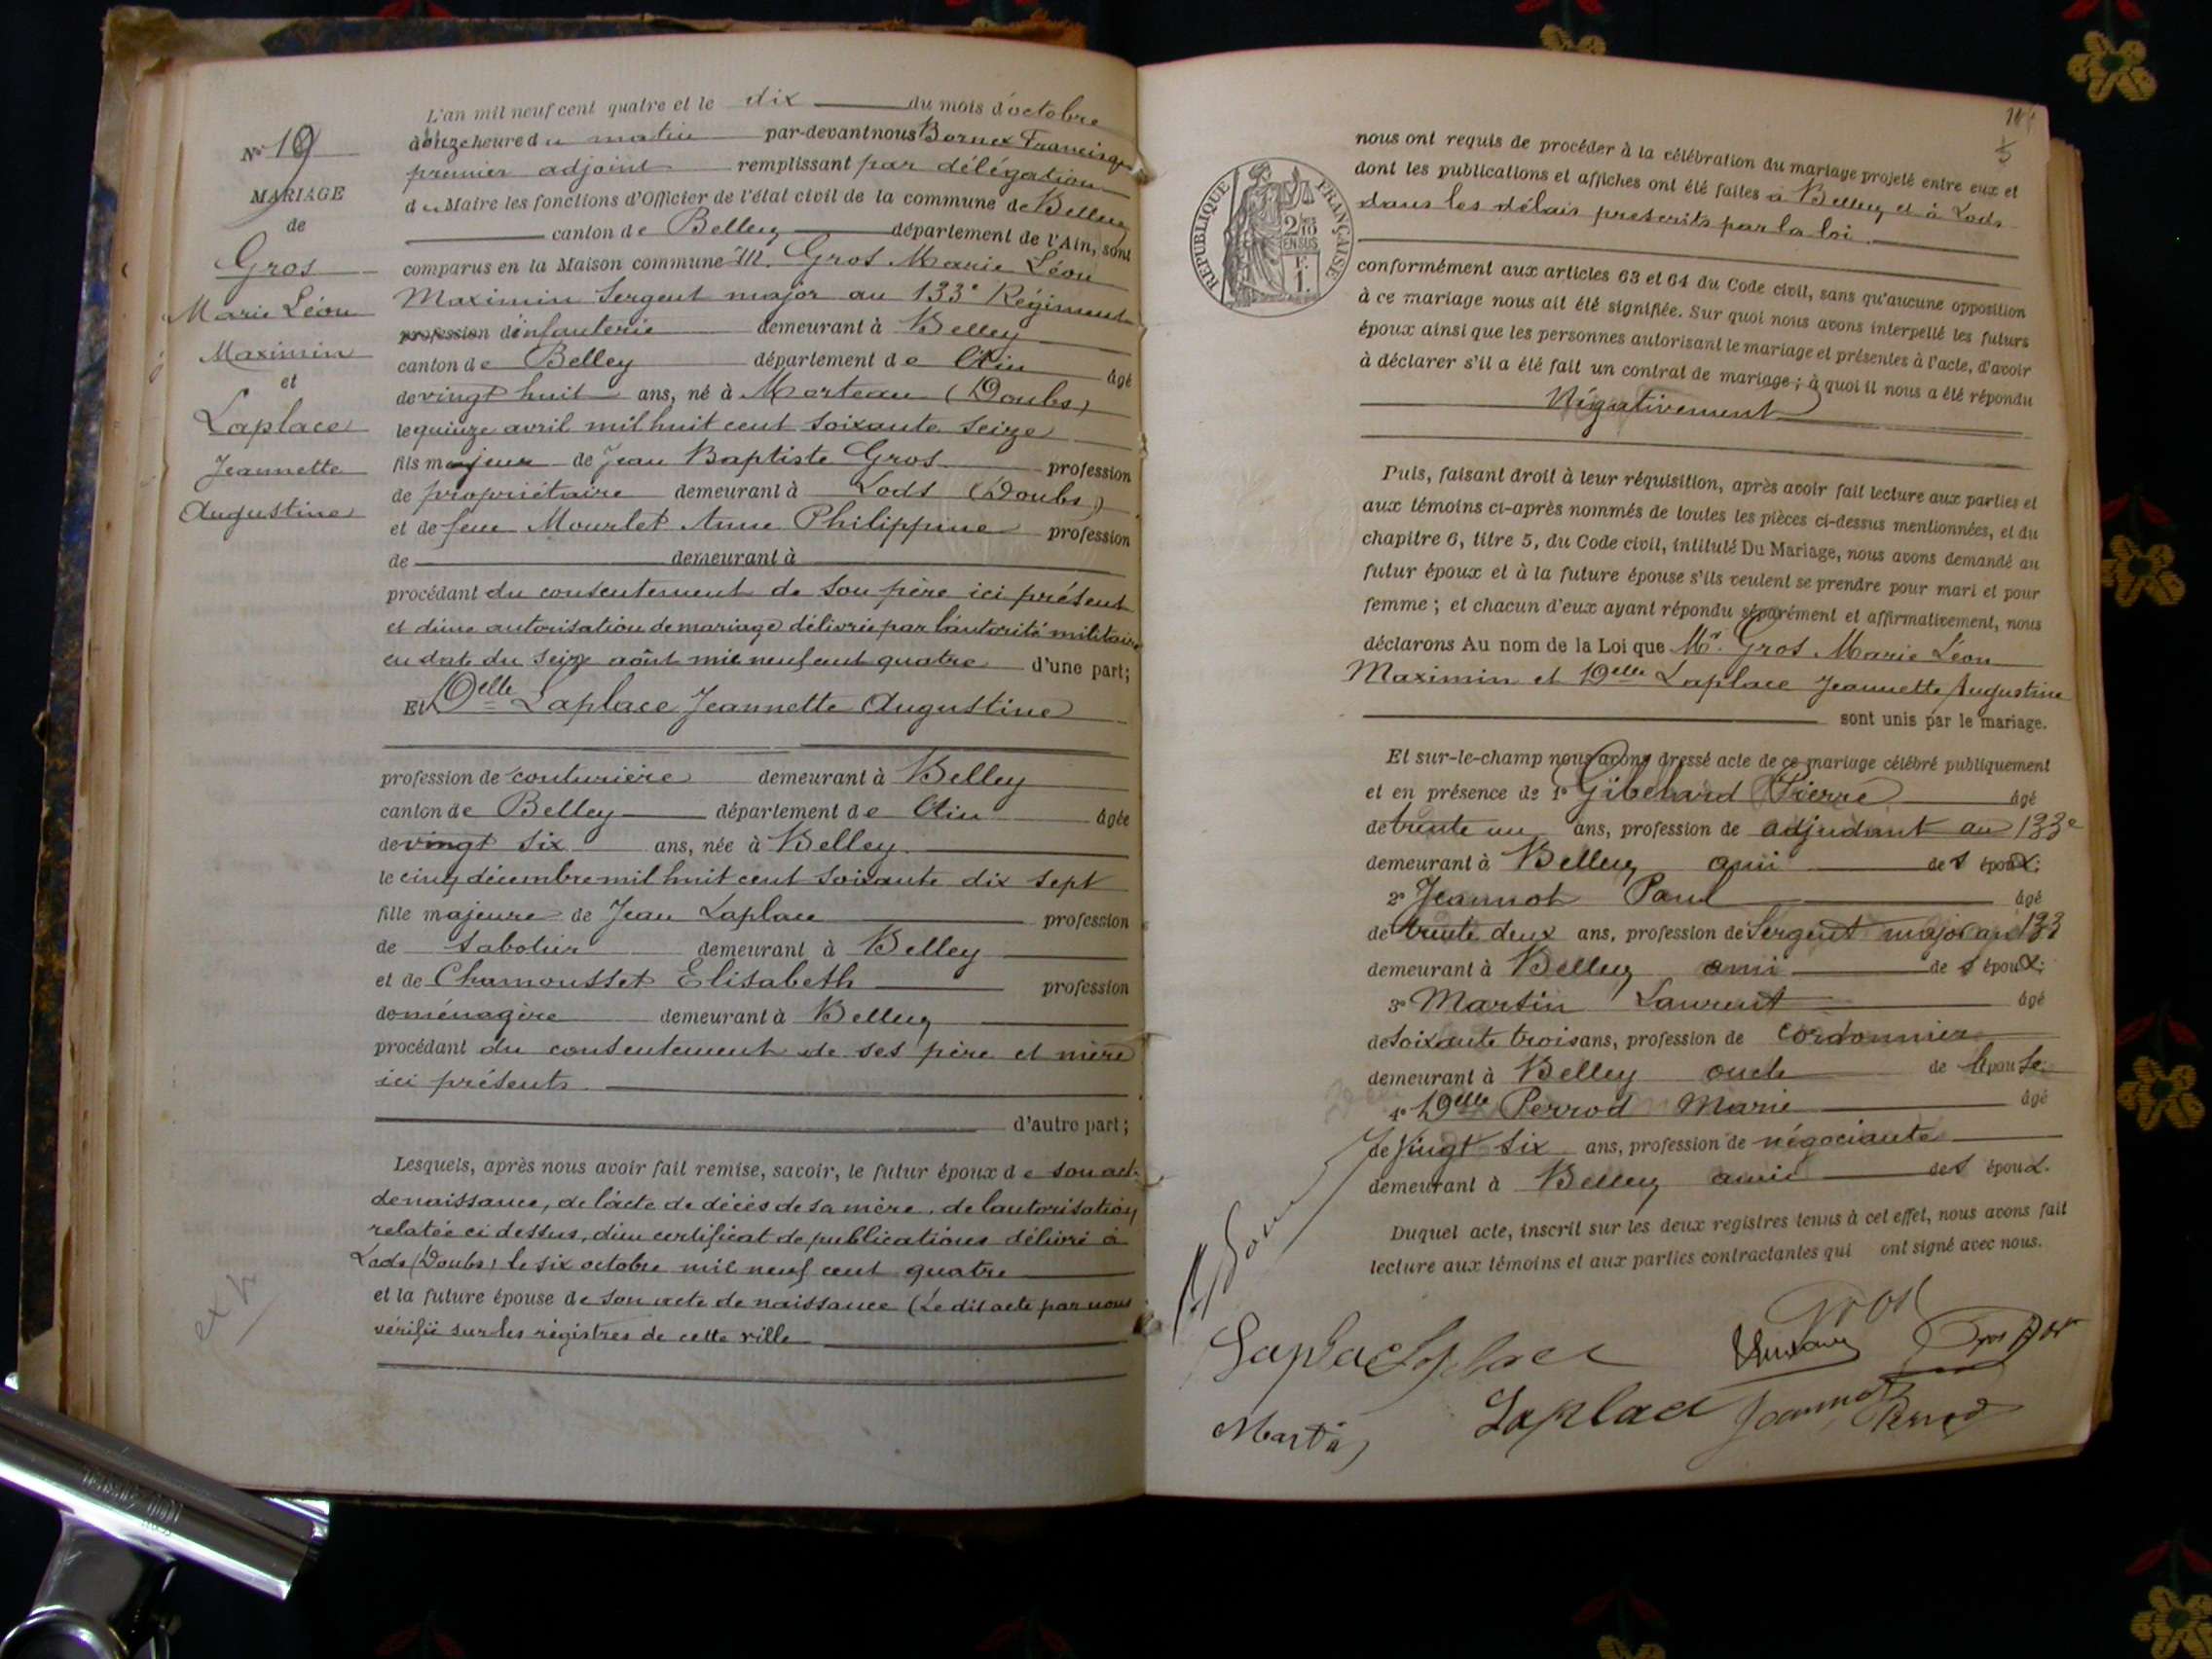 L'an mil neuf cent quatre et le dix du mois d'octobre
à onze heure du matin par-devant nous Bornex Francisque
premier adjoint remplissant par délégation
du Maire les fonctions d'Officier de l'état civil de la commune de Belley
canton de Belley département de l'Ain, sont
comparus en la Maison commune M. Gros Marie Léon
Maximin Sergent major au 133e Régiment
profession d'infanterie demeurant à Belley
canton de Belley département de l'Ain âgé
de vingt huit ans, né à Morteau (Doubs)
le quinze avril mil huit cent soixante seize
fils majeur de Jean Baptiste Gros profession
de propriétaire demeurant à Lods (Doubs)
et de feue Mourlet Anne Philippine profession
de demeurant à
procédant du consentement de son père ici présent
et d'une autorisation de mariage délivrée par l'autorité militaire
en date du seize août mil neuf cent quatre d'une part;
Et Delle Laplace Jeannette Augustine
profession de couturière demeurant à Belley
canton de Belley département de l'Ain âgée
de vingt six ans, née à Belley
le cinq décembre mil huit cent soixante dix sept
fille majeure de Jean Laplace profession
de sabotier demeurant à Belley
et de Chamousset Elisabeth profession
de ménagère demeurant à Belley
procédant du consentement de ses père et mère
ici présents
d'autre part;
Lesquels, après nous avoir fait remise, savoir, le futur époux de son acte
de naissance, de l'acte de décès de sa mère, de l'autorisation
relatée ci dessus, d'un certificat de publications délivré à
Lods (Doubs) le six octobre mil neuf cent quatre
et la future épouse de son acte de naissance (Le dit acte par nous
vérifié sur les régistres de cette ville
No 19
MARIAGE
de
Gros
Marie Léon
Maximin
et
Laplace
Jeannette
Augustine
nous ont requis de procéder à la célébration du mariage projeté entre eux et
dont les publications et affiches ont été faites à Belley et à Lods
dans les délais prescrits par la loi.
RÉPUBLIQUE FRANÇAISE
2/10
EN SUS
F.
1.
conformément aux articles 63 et 64 du Code civil, sans qu'aucune opposition
à ce mariage nous ait été signifiée. Sur quoi nous avons interpellé les futurs
époux ainsi que les personnes autorisant le mariage et présentes à l'acte, d'avoir
à déclarer s'il a été fait un contrat de mariage; à quoi il nous a été répondu
Négativement
Puis, faisant droit à leur réquisition, après avoir fait lecture aux parties et
aux témoins ci-après nommés de toutes les pièces ci-dessus mentionnées, et du
chapitre 6, titre 5, du Code civil, intitulé Du Mariage, nous avons demandé au
futur époux et à la future épouse s'ils veulent se prendre pour mari et pour
femme; et chacun d'eux ayant répondu séparément et affirmativement, nous
déclarons Au nom de la Loi que Mr. Gros Marie Léon
Maximin et Delle Laplace Jeannette Augustine
sont unis par le mariage.
Et sur-le-champ nous avons dressé acte de ce mariage célébré publiquement
et en présence de 1o Gibehard Pierre âgé
de trente un ans, profession de adjudant au 133e
demeurant à Belley ami des époux;
2o Jeannot Paul âgé
de trente deux ans, profession de Sergent major au 133
demeurant à Belley ami des époux;
3o Martin Laurent âgé
de soixante trois ans, profession de cordonnier
demeurant à Belley oncle de l'épouse;
4o Delle Perrod Marie âgé
de vingt six ans, profession de négociante
demeurant à Belley amie des époux.
Duquel acte, inscrit sur les deux registres tenus à cet effet, nous avons fait
lecture aux témoins et aux parties contractantes qui ont signé avec nous.
Gros
Laplace Laplace
Laplace Jeannot Perrod
Martin